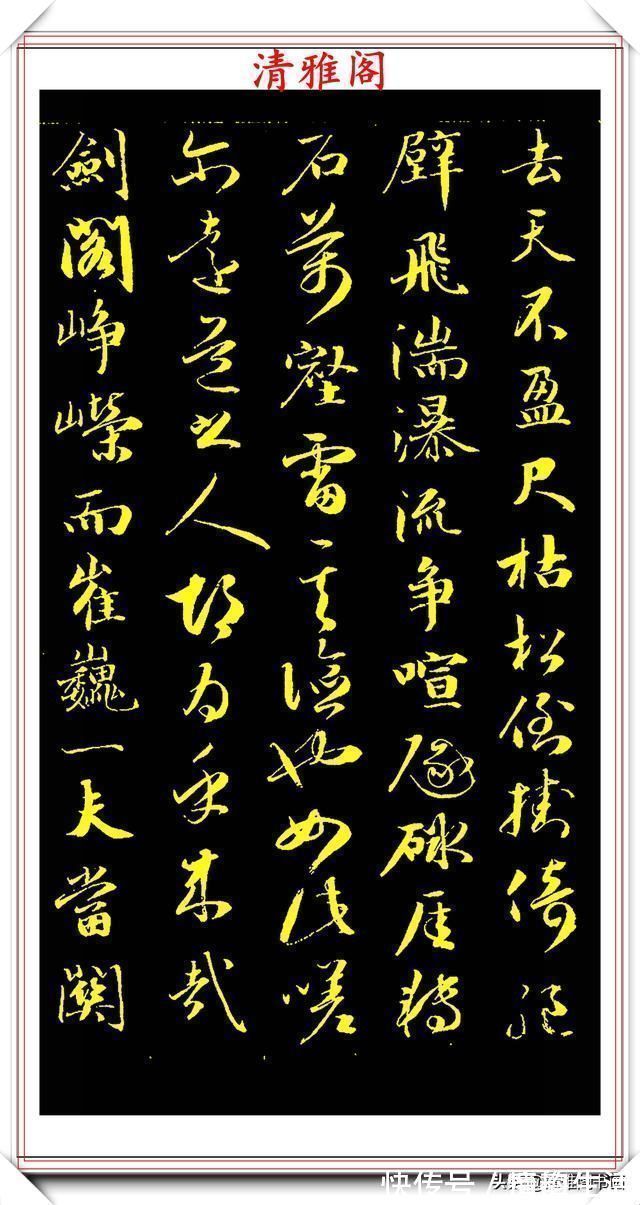 清雅阁
去天不盈尺枯松倒掛倚絕
壁飛湍瀑流争喧豗砯厓轉
石萬壑雷其險也如此嗟
尔遠道之人胡为乎来哉
劍閣峥嶸而崔巍一夫當関
快传号 /